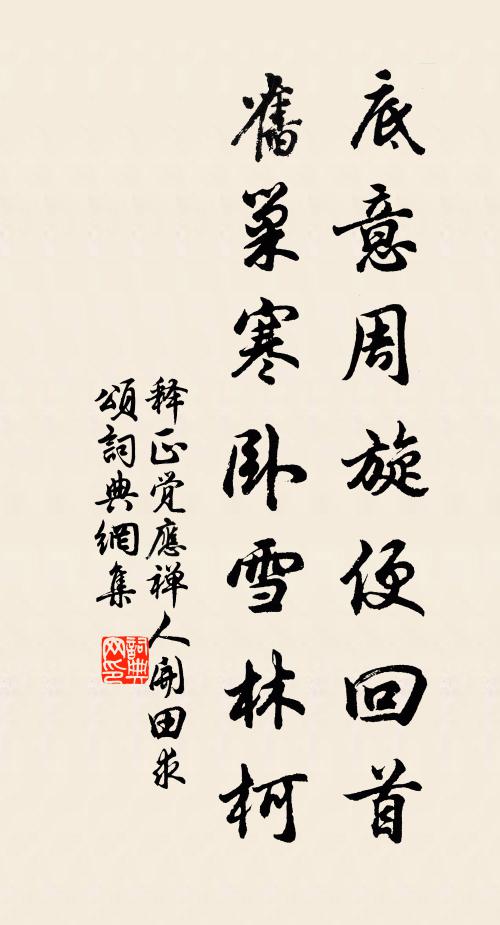 底意周旋便回首
舊巢寒卧雪林柯
释正覺應禅人開田求
頌詞典網集
詞典网印